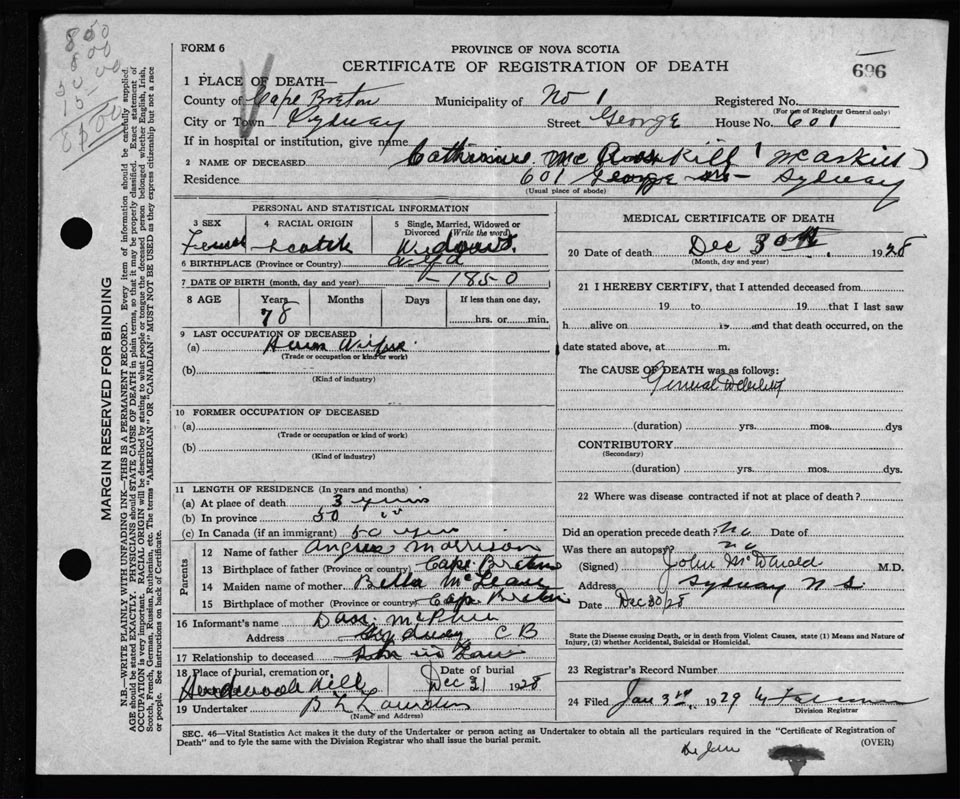 FORM 6
PROVINCE OF NOVA SCOTIA
CERTIFICATE OF REGISTRATION OF DEATH
696
1 PLACE OF DEATH—
County of Cape Breton Municipality of No 1 Registered No.
(For use of Registrar General only)
City or Town Sydney Street George House No. 601
If in hospital or institution, give name
2 NAME OF DECEASED Catherine Mc Kill (McAskill)
Residence 601 George St— Sydney
(Usual place of abode)
PERSONAL AND STATISTICAL INFORMATION
3 SEX 4 RACIAL ORIGIN 5 Single, Married, Widowed or Divorced (Write the word)
Female Scotch Widowed
6 BIRTHPLACE (Province or Country)
7 DATE OF BIRTH (month, day and year) 1850
8 AGE Years Months Days If less than one day,
78 hrs. or min.
9 LAST OCCUPATION OF DECEASED
(a) House Wife
(Trade or occupation or kind or work)
(b)
(Kind of industry)
10 FORMER OCCUPATION OF DECEASED
(a)
(Trade or occupation or kind of work)
(b)
(Kind of industry)
11 LENGTH OF RESIDENCE (In years and months)
(a) At place of death 3 years
(b) In province 50 " "
(c) In Canada (if an immigrant) 50 years
Parents
12 Name of father Angus Morrison
13 Birthplace of father (Province or country) Cape Breton
14 Maiden name of mother Bella McLean
15 Birthplace of mother (Province or country) Cape Breton
16 Informant's name McPhee
Address Sydney C B
17 Relationship to deceased Son in Law
18 Place of burial, cremation or Date of burial
Hardwood Hill Dec 31 1928
19 Undertaker
(Name and Address)
MEDICAL CERTIFICATE OF DEATH
20 Date of death Dec 30th 1928
(Month, day and year)
21 I HEREBY CERTIFY, that I attended deceased from
19 to 19 that I last saw
h alive on 19 and that death occurred, on the
date stated above, at m.
The CAUSE OF DEATH was as follows:
General Debility
(duration) yrs. mos. dys
CONTRIBUTORY
(Secondary)
(duration) yrs. mos. dys.
22 Where was disease contracted if not at place of death?
Did an operation precede death? No Date of
Was there an autopsy? no
(Signed) John McDonald M.D.
Address Sydney N S.
Date Dec 30/28
State the Disease causing Death, or in death from Violent Causes, state (1) Means and Nature of
Injury, (2) whether Accidental, Suicidal or Homicidal.
23 Registrar's Record Number
24 Filed Jan 3rd, 1929
Division Registrar
SEC. 46—Vital Statistics Act makes it the duty of the Undertaker or person acting as Undertaker to obtain all the particulars required in the "Certificate of Registration of
Death" and to fyle the same with the Division Registrar who shall issue the burial permit.
(OVER)
MARGIN RESERVED FOR BINDING
N.B.—WRITE PLAINLY WITH UNFADING INK—THIS IS A PERMANENT RECORD. Every item of information should be carefully supplied.
AGE should be stated EXACTLY. PHYSICIANS should STATE CAUSE OF DEATH in plain terms, so that it may be properly classified. Exact statement of
OCCUPATION is very important. RACIAL ORIGIN will be described by stating to what people or tongue the deceased person belonged whether English, Irish,
Scotch, French, German, Russian, Ruthenian, etc. The terms "AMERICAN" OR "CANADIAN" MUST NOT BE USED as they express citizenship but not a race
or people. See instructions on back of Certificate.